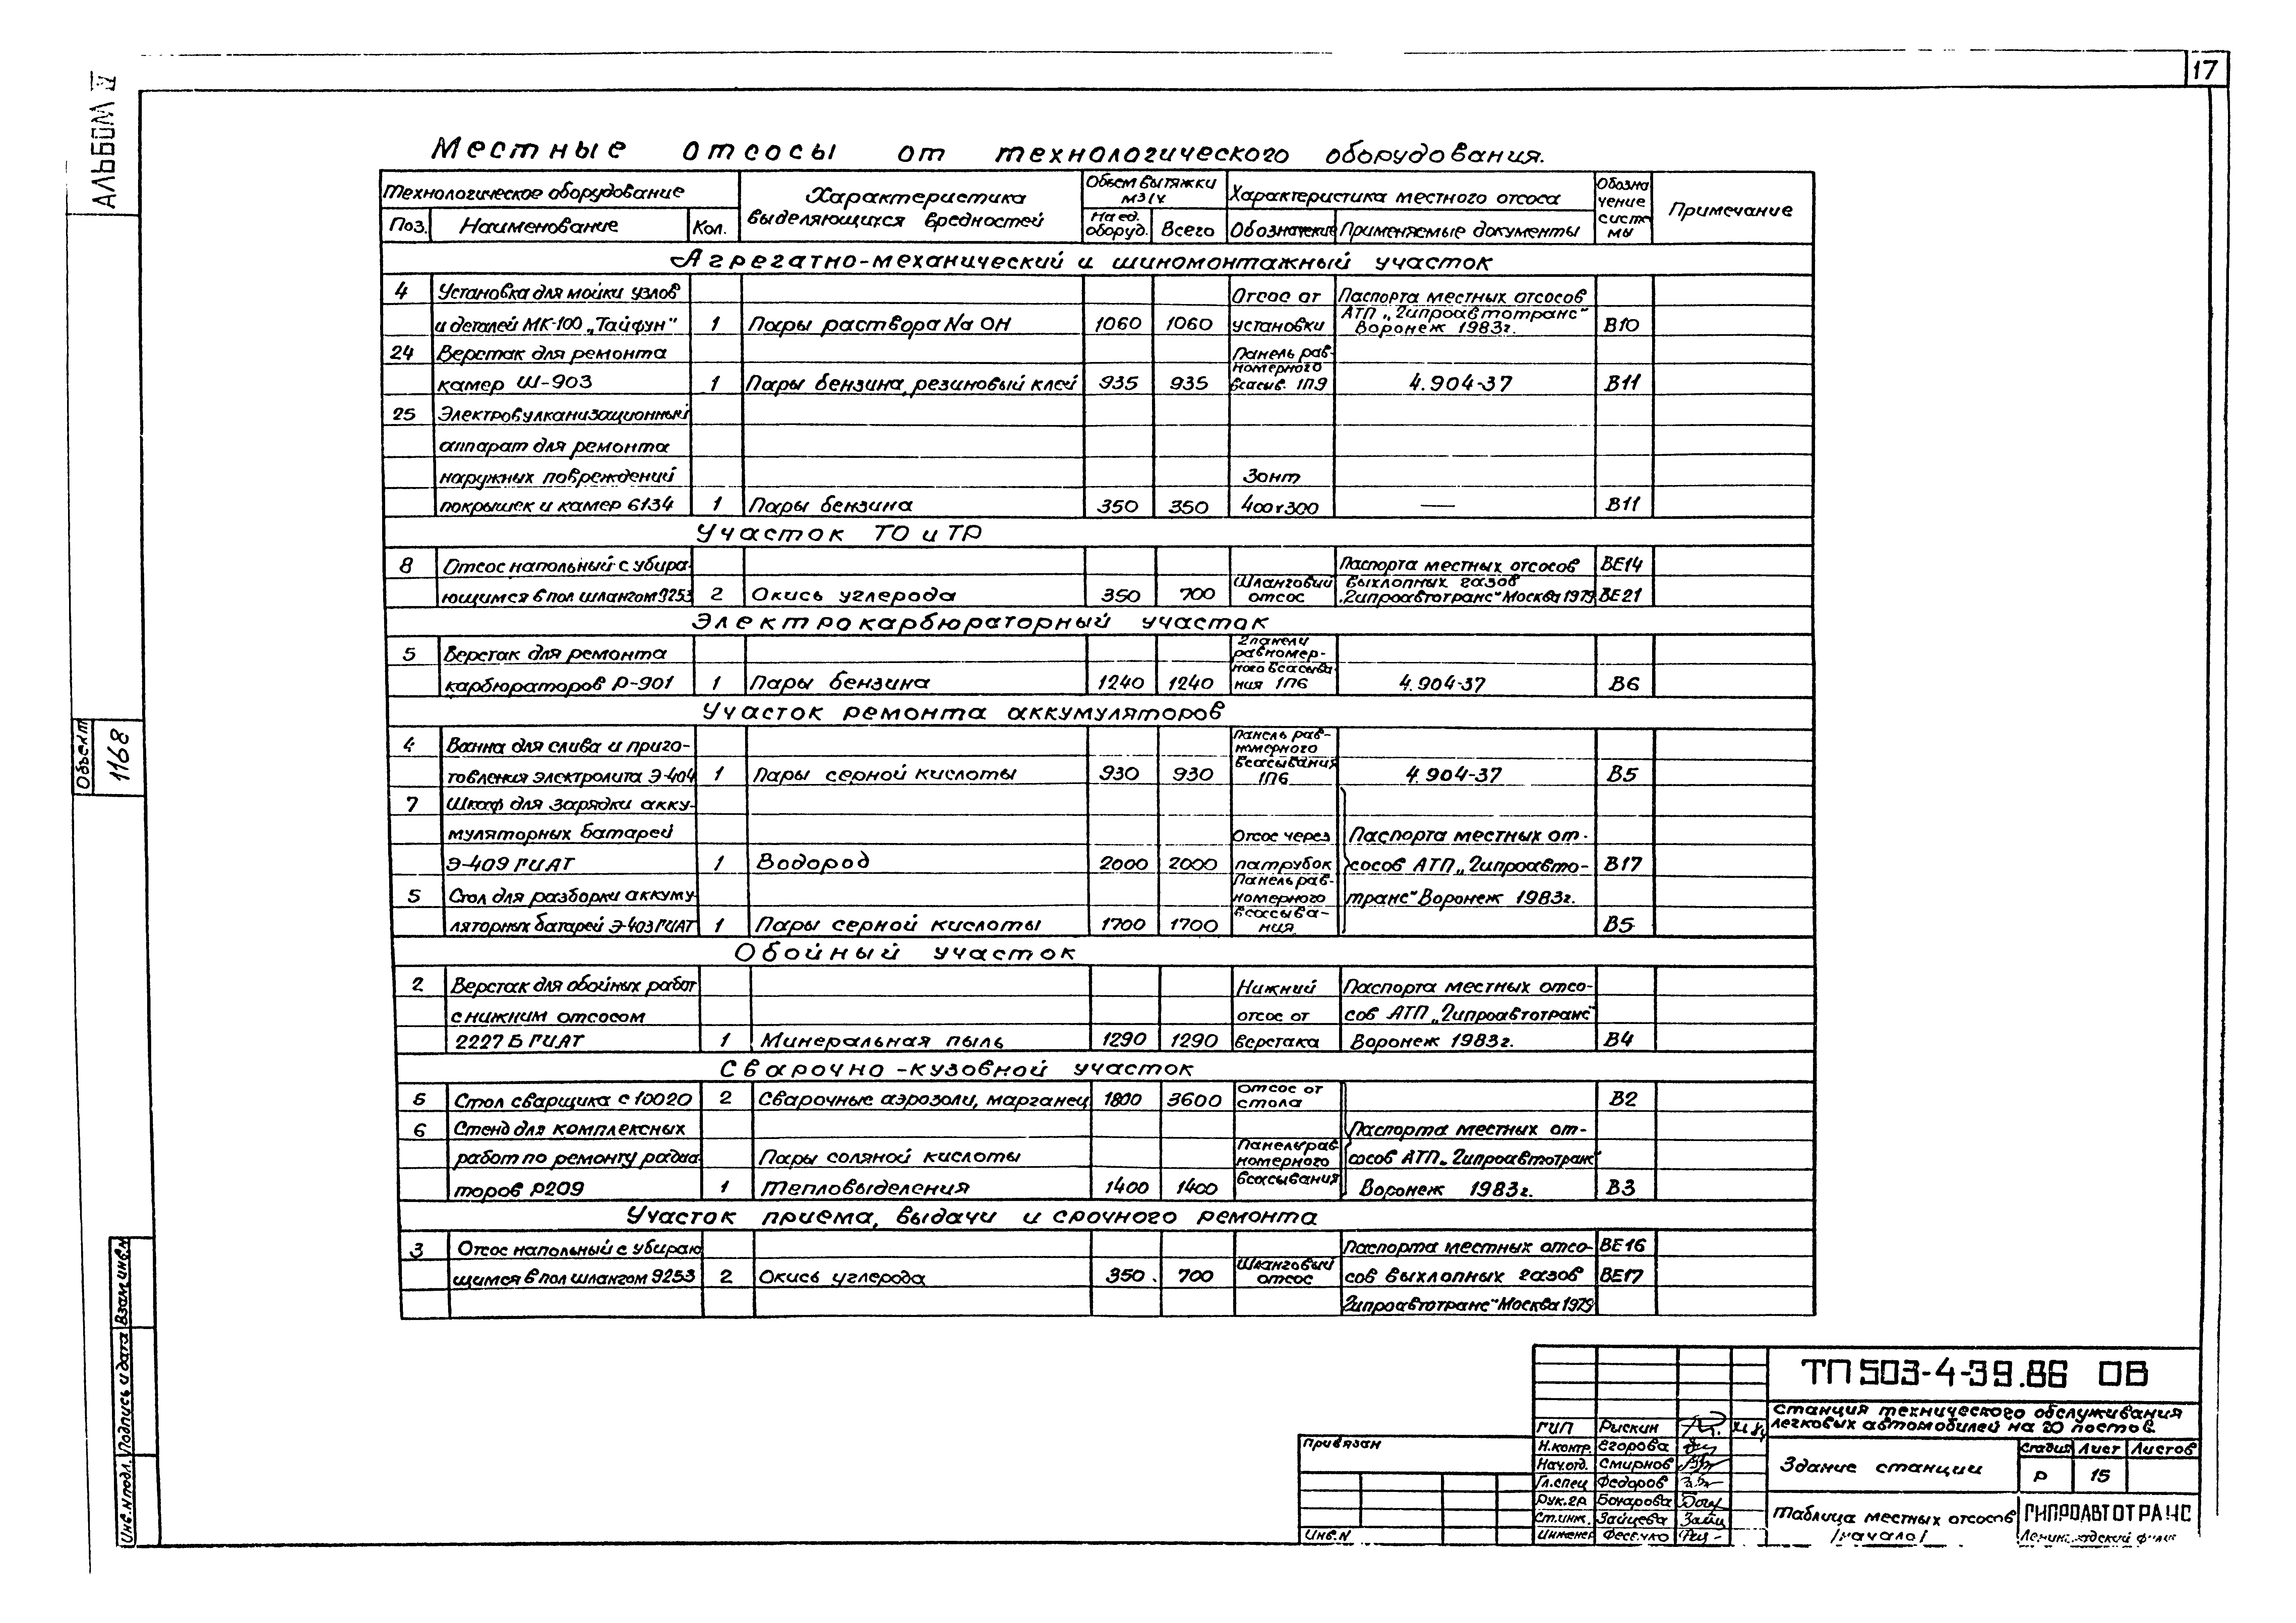 17
АЛЬБОМ IV
Местные отсосы от технологического оборудования.
Технологическое оборудование
Характеристика выделяющихся вредностей
Объем вытяжки м3/ч
Характеристика местного отсоса
Обозначение системы
Примечание
Поз. Наименование Кол. На ед. оборуд. Всего Обозначение Применяемые документы
Агрегатно-механический и шиномонтажный участок
4 Установка для мойки узлов Отсос от Паспорта местных отсосов
и деталей МК-100 „Тайфун" 1 Пары раствора NaOH 1060 1060 установки АТП „Гипроавтотранс" Воронеж 1983г. В10
24 Верстак для ремонта Панель рав-
камер Ш-903 1 Пары бензина, резиновый клей 935 935 номерного всасыв. 1П9 4.904-37 В11
25 Электровулканизационный
аппарат для ремонта
наружных повреждений Зонт
покрышек и камер 6134 1 Пары бензина 350 350 400х300 — В11
Участок ТО и ТР
8 Отсос напольный с убира- Паспорта местных отсосов ВЕ14
ющимся в пол шлангом 9253 2 Окись углерода 350 700 Шланговый отсос выхлопных газов „Гипроавтотранс" Москва 1979 ВЕ21
Электрокарбюраторный участок
5 Верстак для ремонта 2 панели равномер-
карбюраторов Р-901 1 Пары бензина 1240 1240 ного всасыва ния 1П6 4.904-37 В6
Участок ремонта аккумуляторов
4 Ванна для слива и приго- Панель рав- номерного
товления электролита Э-404 1 Пары серной кислоты 930 930 всасывания 1П6 4.904-37 В5
7 Шкаф для зарядки акку-
муляторных батарей Отсос через Паспорта местных от-
Э-409 ГИАТ 1 Водород 2000 2000 патрубок сосов АТП „Гипроавто- В17
5 Стол для разборки аккуму Панель рав- номерного транс" Воронеж 1983г.
ляторных батарей Э-403 ГИАТ 1 Пары серной кислоты 1700 1700 всасыва- ния В5
Обойный участок
2 Верстак для обойных работ Нижний Паспорта местных отсо-
с нижним отсосом отсос от сов АТП „Гипроавтотранс"
2227 Б ГИАТ 1 Минеральная пыль 1290 1290 верстака Воронеж 1983г. В4
Сварочно-кузовной участок
5 Стол сварщика с 10020 2 Сварочные аэрозоли, марганец 1800 3600 отсос от стола В2
6 Стенд для комплексных Паспорта местных от-
работ по ремонту радиа- Пары соляной кислоты Панель рав номерного сосов АТП „Гипроавтотранс"
торов Р209 1 Тепловыделения 1400 1400 всасывания Воронеж 1983г. В3
Участок приема, выдачи и срочного ремонта
3 Отсос напольный с убираю Паспорта местных отсо- ВЕ16
щимся в пол шлангом 9253 2 Окись углерода 350 700 Шланговый отсос сов выхлопных газов ВЕ17
Гипроавтотранс" Москва 1979
Объект
1168
Взам инв.N
Подпись и дата
Инв.N подл.
Привязан
Инв.N
ГИП Рискин
Н.контр. Егорова
Нач.отд. Смирнов
Гл.спец Федоров
Рук.гр Бочарова
Ст.инж. Зайцева
Инженер Фесечко
ТП 503-4-39.86 ОВ
Станция технического обслуживания
легковых автомобилей на 20 постов.
Здание станции
Стадия Лист Листов
Р 15
Таблица местных отсосов
/начало/
ГИПРОАВТОТРАНС
Ленинградский филиал